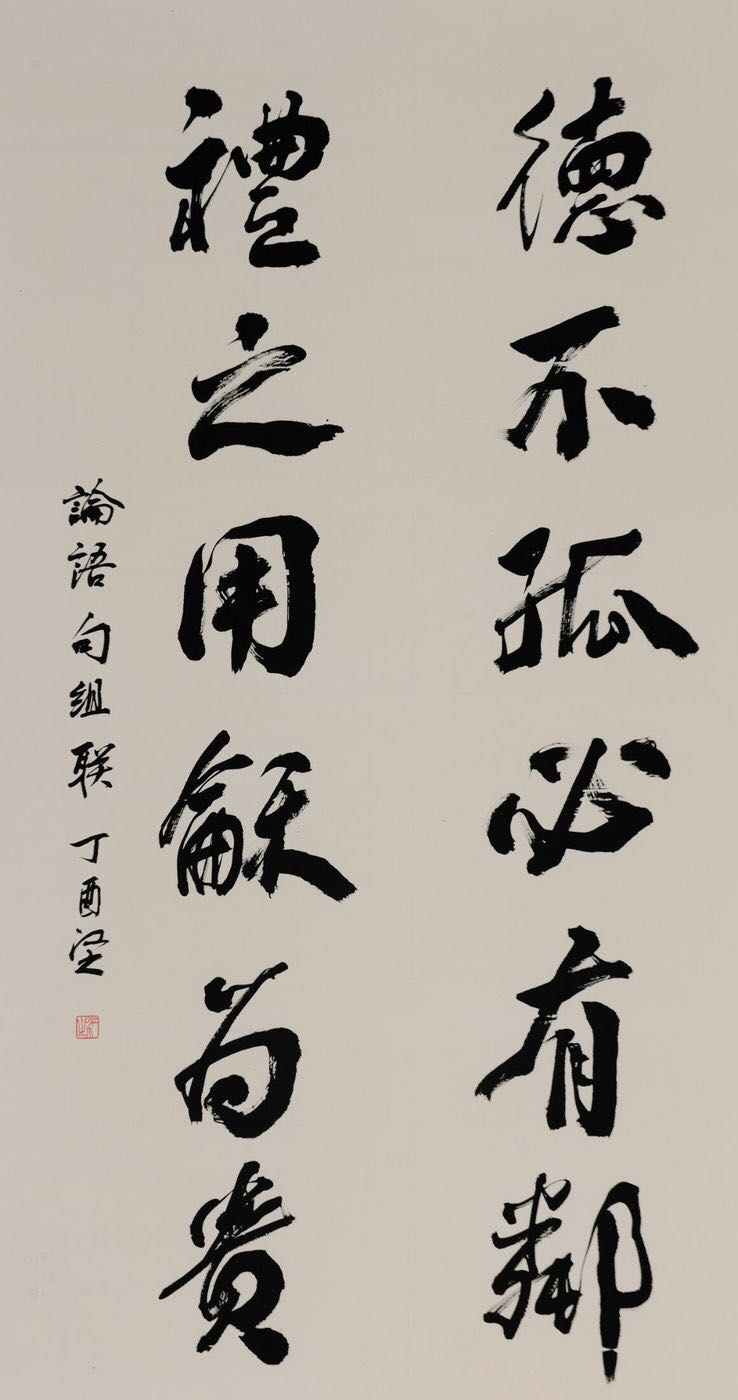 德不孤必有鄰
禮之用龢为貴
論語句組联 丁酉